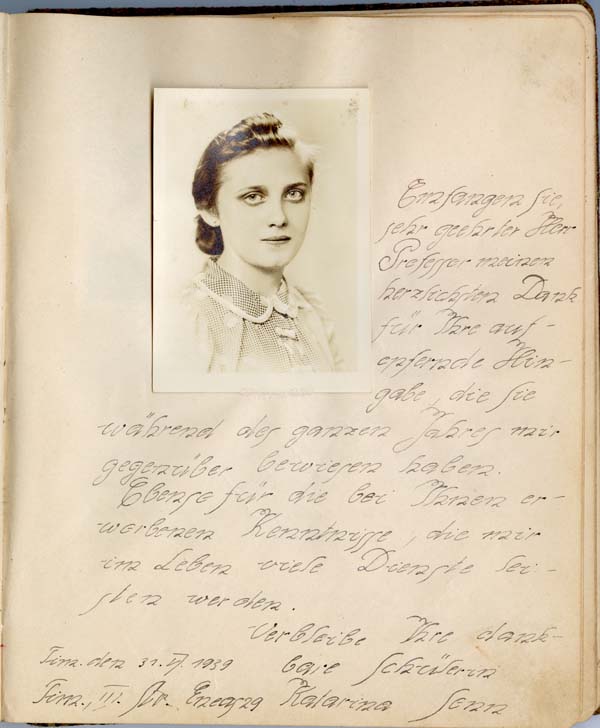 Emfangen sie,
sehr geehrter Herr
Professor meinen
herzlichsten Dank
für Ihre auf-
opfernde Hin-
gabe, die sie
während des ganzen Jahres mir
gegenüber bewiesen haben.
Ebenso für die bei Ihnen er-
worbenen Kenntnisse, die mir
im Leben viele Dienste lei-
sten werden.
Verbleibe Ihre dank-
Tim. den 31. 1939 bare Schülerin
Tim., III. Str. Katarina Senn